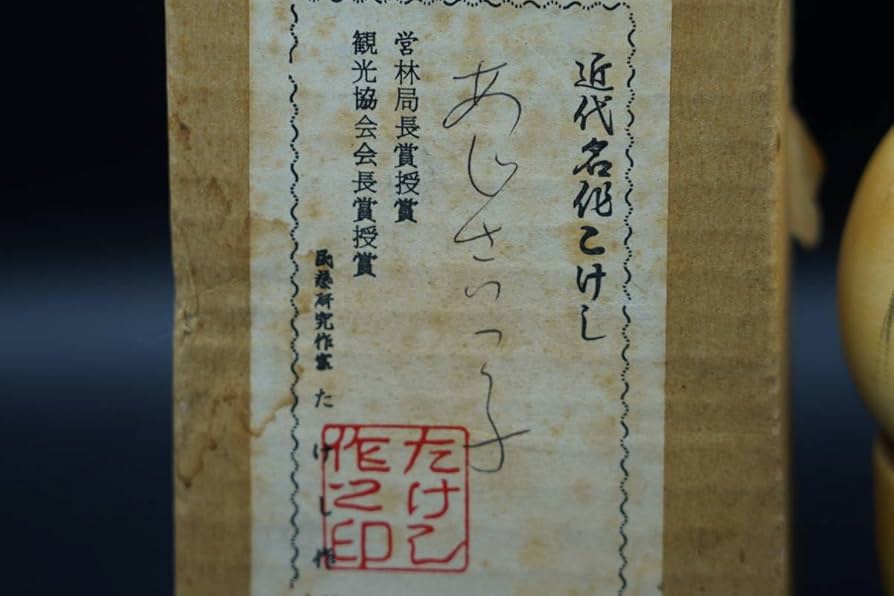 近代名作こけし
あじさいっ子
営林局長賞授賞
観光協会会長賞授賞
民芸研究作家 たけし作
たけし
作之印